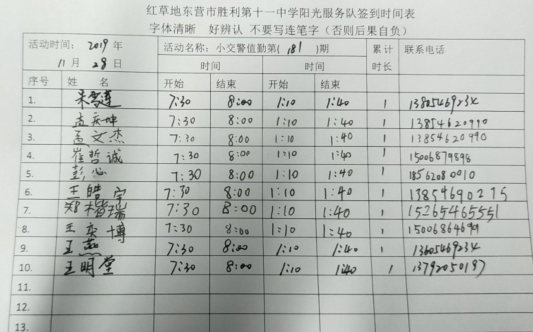 红草地东营市胜利第十一中学阳光服务队签到时间表
字体清晰 好辨认 不要写连笔字（否则后果自负）
活动时间：2019 年 活动名称：小交警值勤第（181）期 累计时长 联系电话
11 月 28 日 时间 时间
序号 姓 名 开始 结束 开始 结束
1. 7:30 8:00 1:10 1:40 1
2. 7:30 8:00 1:10 1:40 1 13854620990
3. 孟文杰 7:30 8:00 1:10 1:40 1 13854620990
4. 崔哲诚 7:30 8:00 1:10 1:40 1 15006879898
5. 彭心 7:30 8:00 1:10 1:40 1 18562080010
6. 王皓宇 7:30 8:00 1:10 1:40 1 13854690275
7. 郑楷瑞 7:30 8:00 1:10 1:40 1 15265465551
8. 王奕博 7:30 8:00 1:10 1:40 1
9. 王燕 7:30 8:00 1:10 1:40 1
10. 王明堂 7:30 8:00 1:10 1:40 1 13792050197
11.
12.
13.